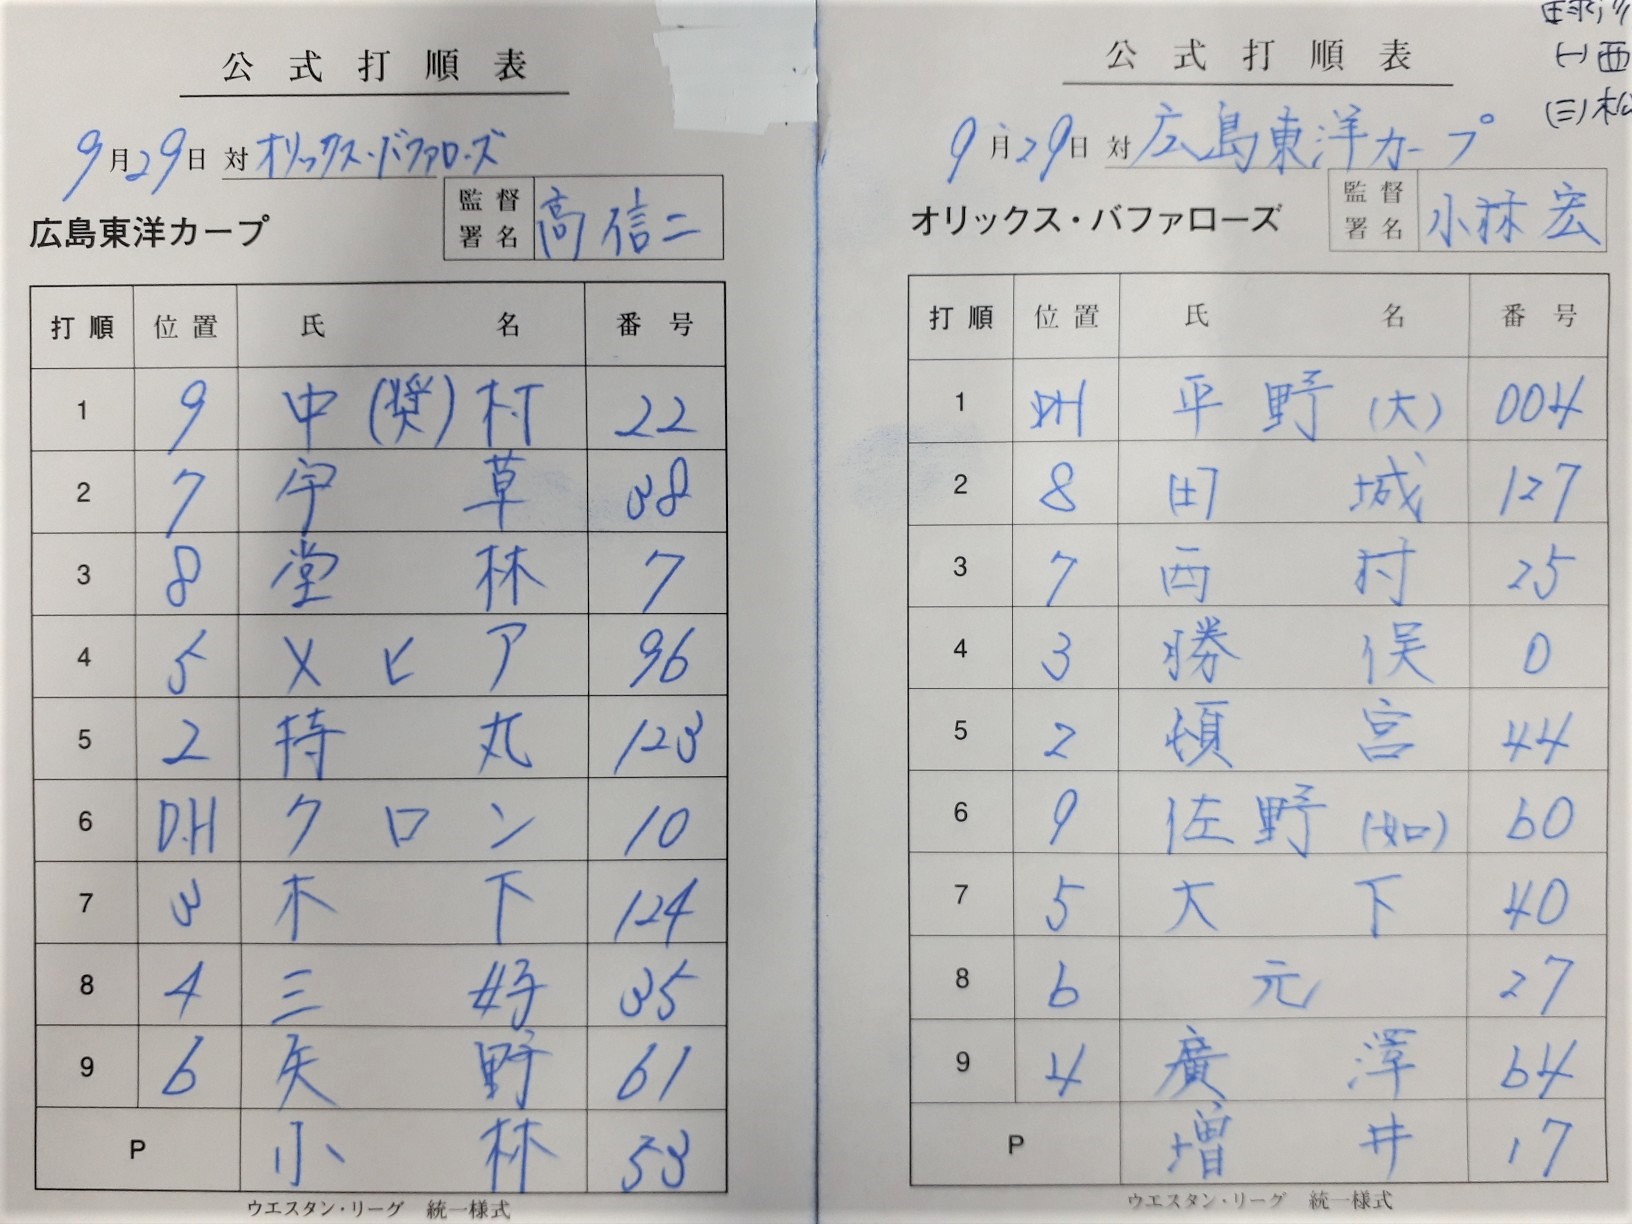 公式打順表
9月29日 対オリックス・バファローズ
広島東洋カープ
監督署名 高信二
打順 位置 氏名 番号
1 9 中(奨)村 22
2 7 宇草 38
3 8 堂林 7
4 5 メヒア 96
5 2 持丸 123
6 D.H クロン 10
7 3 木下 124
8 4 三好 35
9 6 矢野 61
P 小林 53
ウエスタン・リーグ 統一様式
公式打順表
9月29日 対広島東洋カープ
オリックス・バファローズ
監督署名 小林宏
打順 位置 氏名 番号
1 DH 平野(大) 004
2 8 田城 127
3 7 西村 25
4 3 勝俣 0
5 2 頓宮 44
6 9 佐野(如) 60
7 5 大下 40
8 6 元 27
9 4 廣澤 64
P 増井 17
ウエスタン・リーグ 統一様式
(一)西
(三)松